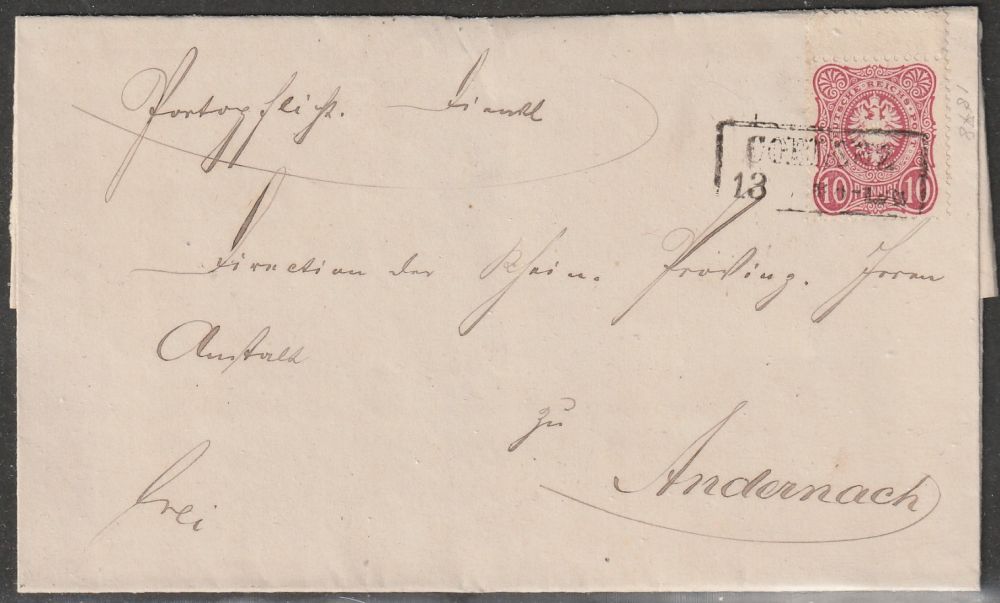 Portopflicht. Dienst
DEUTSCHE REICHS-P
10 PFENNIG 10
1878
13
Direction der Rhein. Provinz. Irren
Anstalt
zu
Andernach
frei